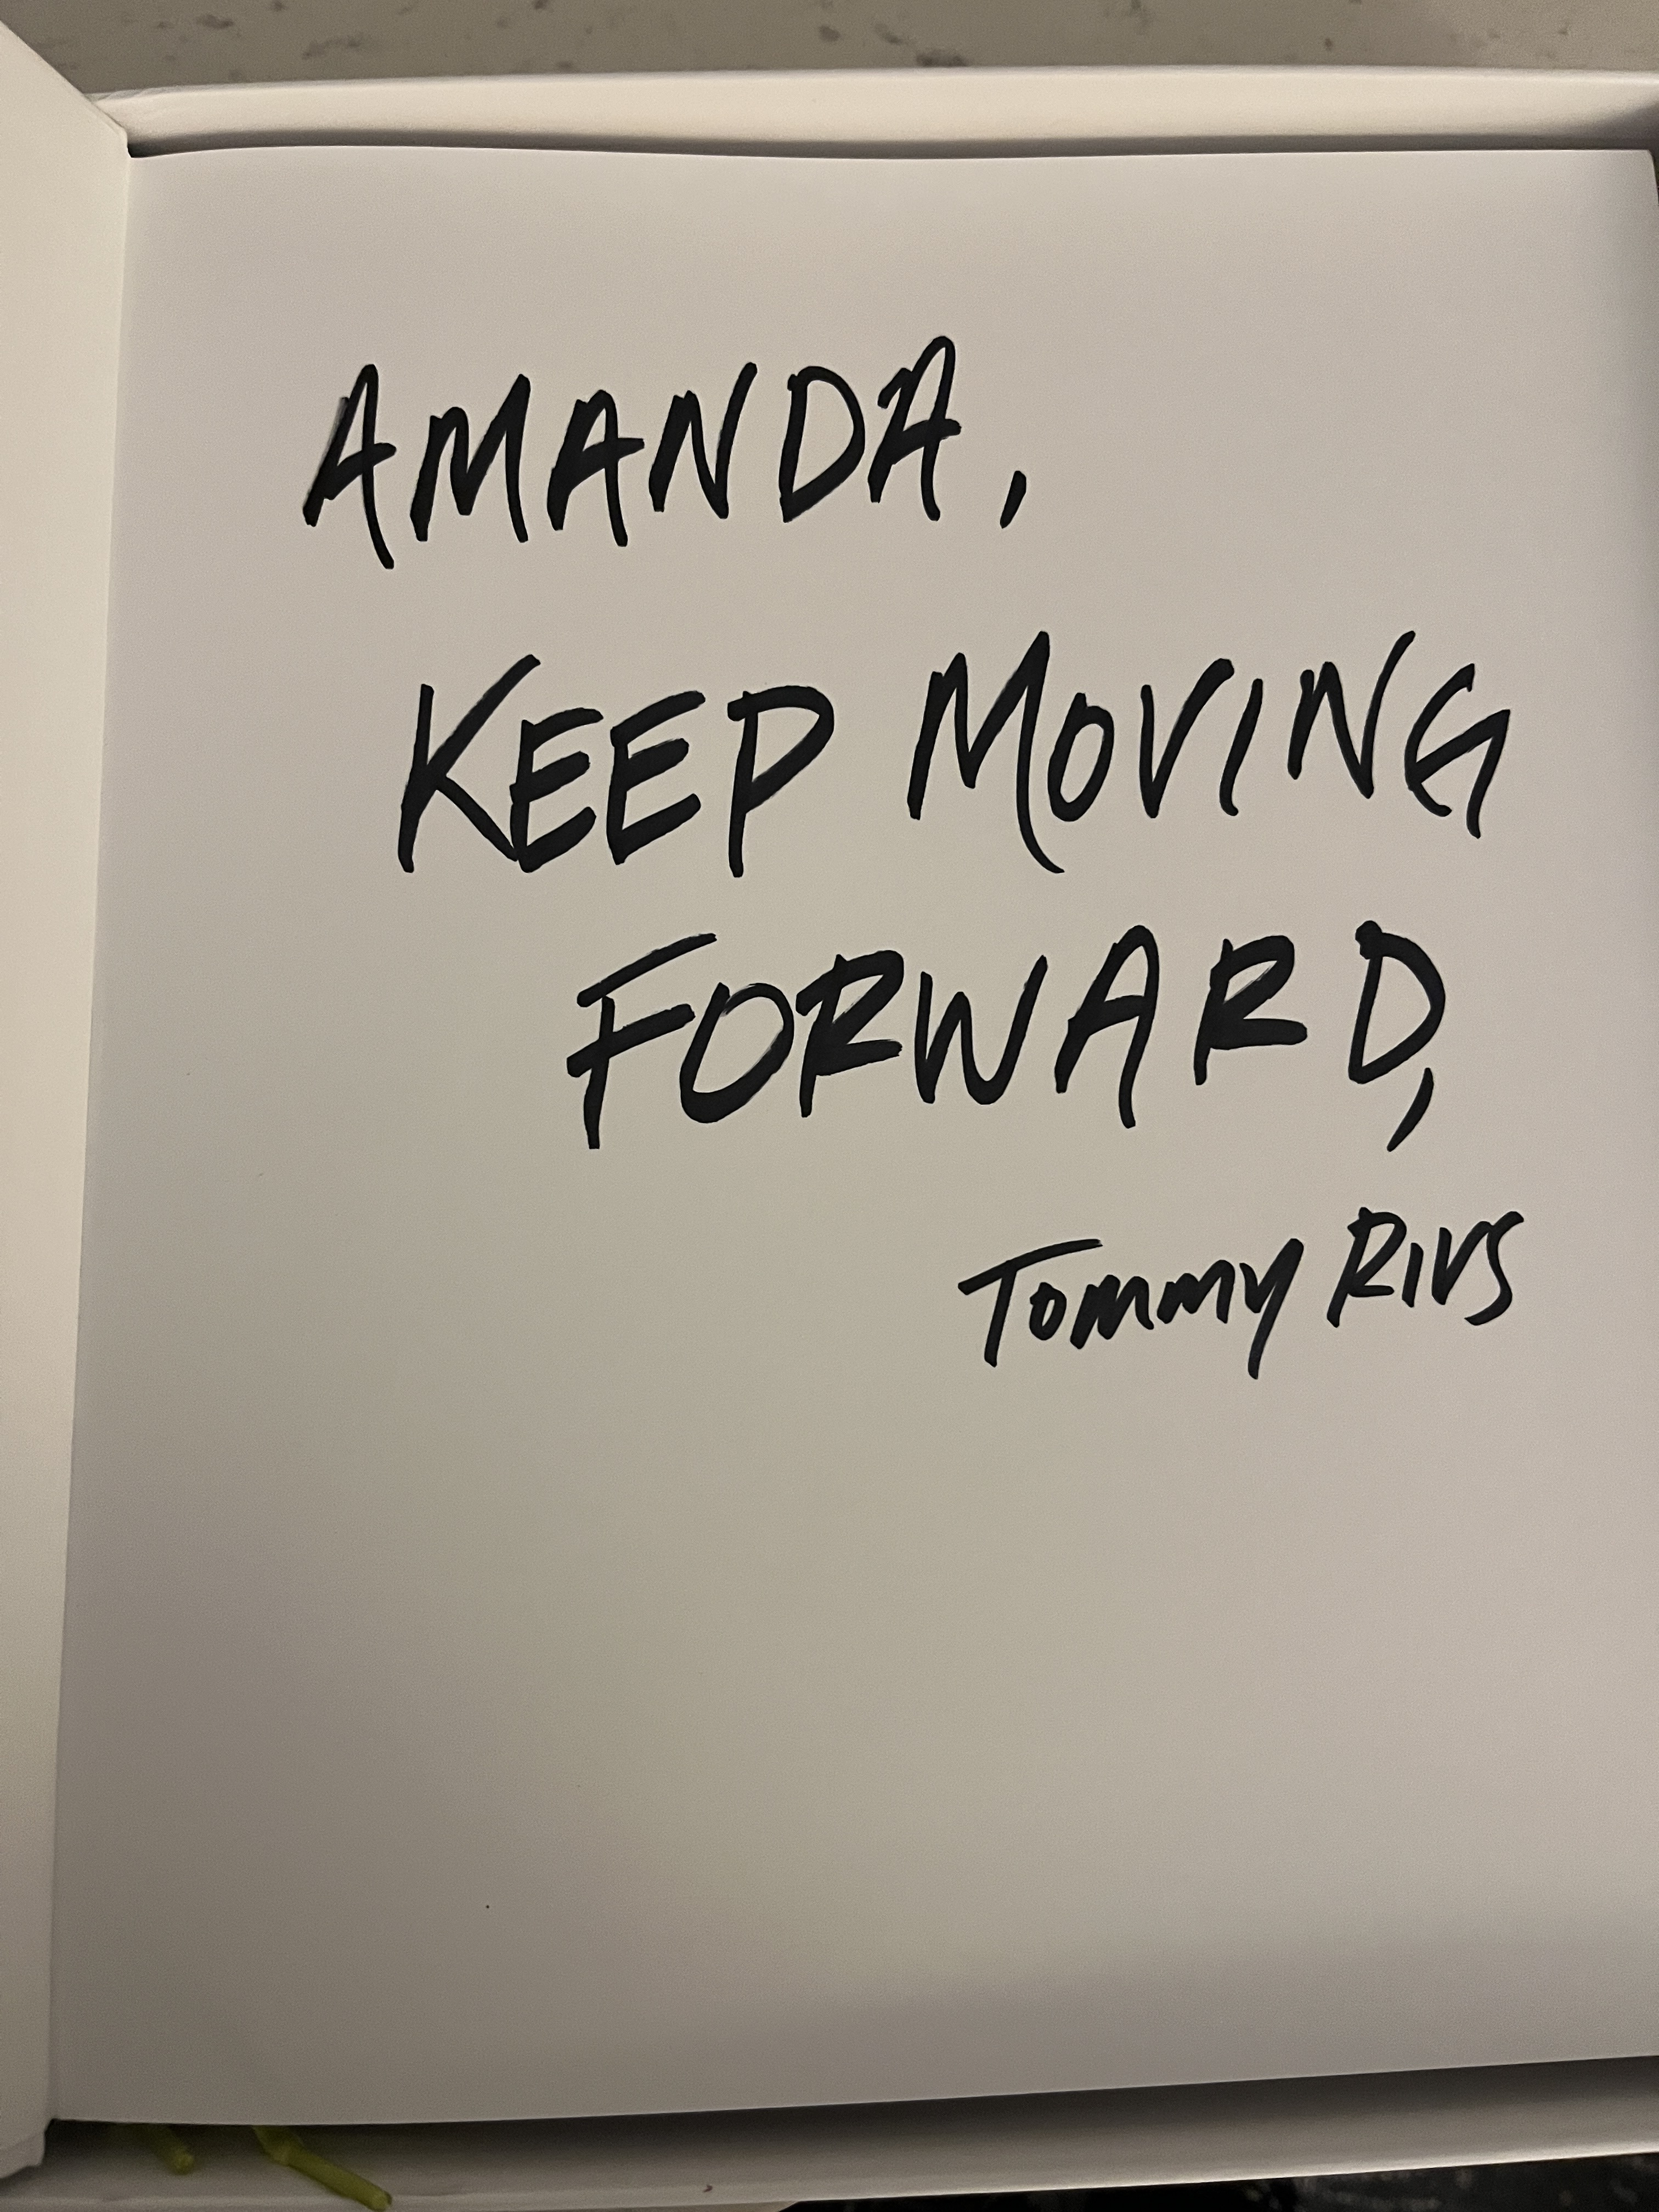 AMANDA,
KEEP MOVING
FORWARD,
TOMMY RIVS